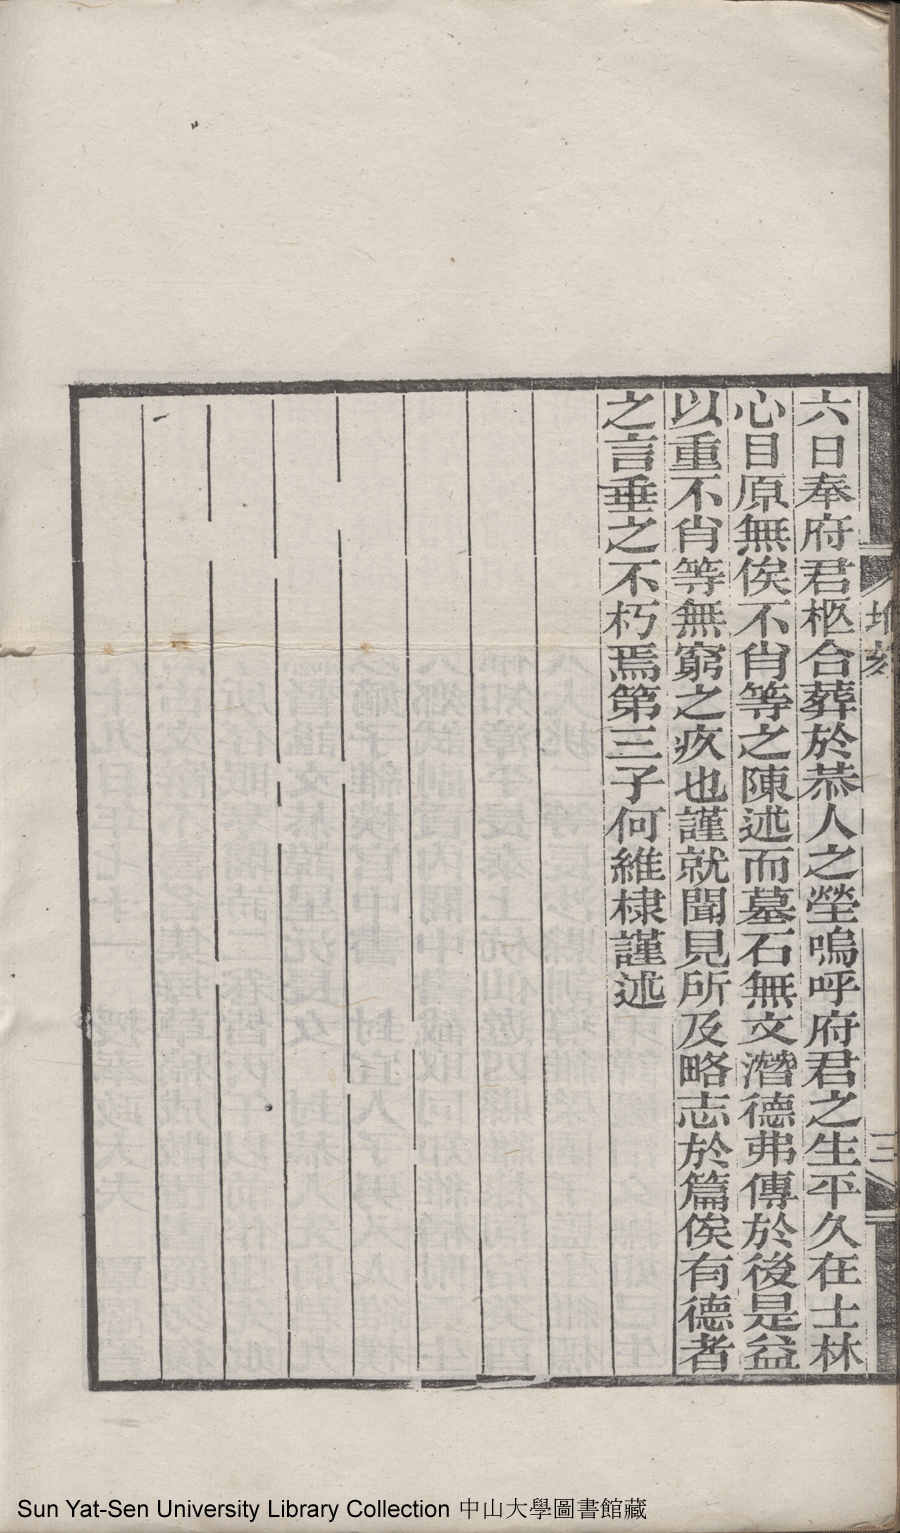 六日奉府君柩合葬於恭人之塋嗚呼府君之生平久在士林
心目原無俟不肖等之陳述而墓石無文潛德弗傳於後是益
以重不肖等無窮之疚也謹就聞見所及略志於篇俟有德者
之言垂之不朽焉第三子何維棣謹述
三
Sun Yat-Sen University Library Collection 中山大學圖書館藏